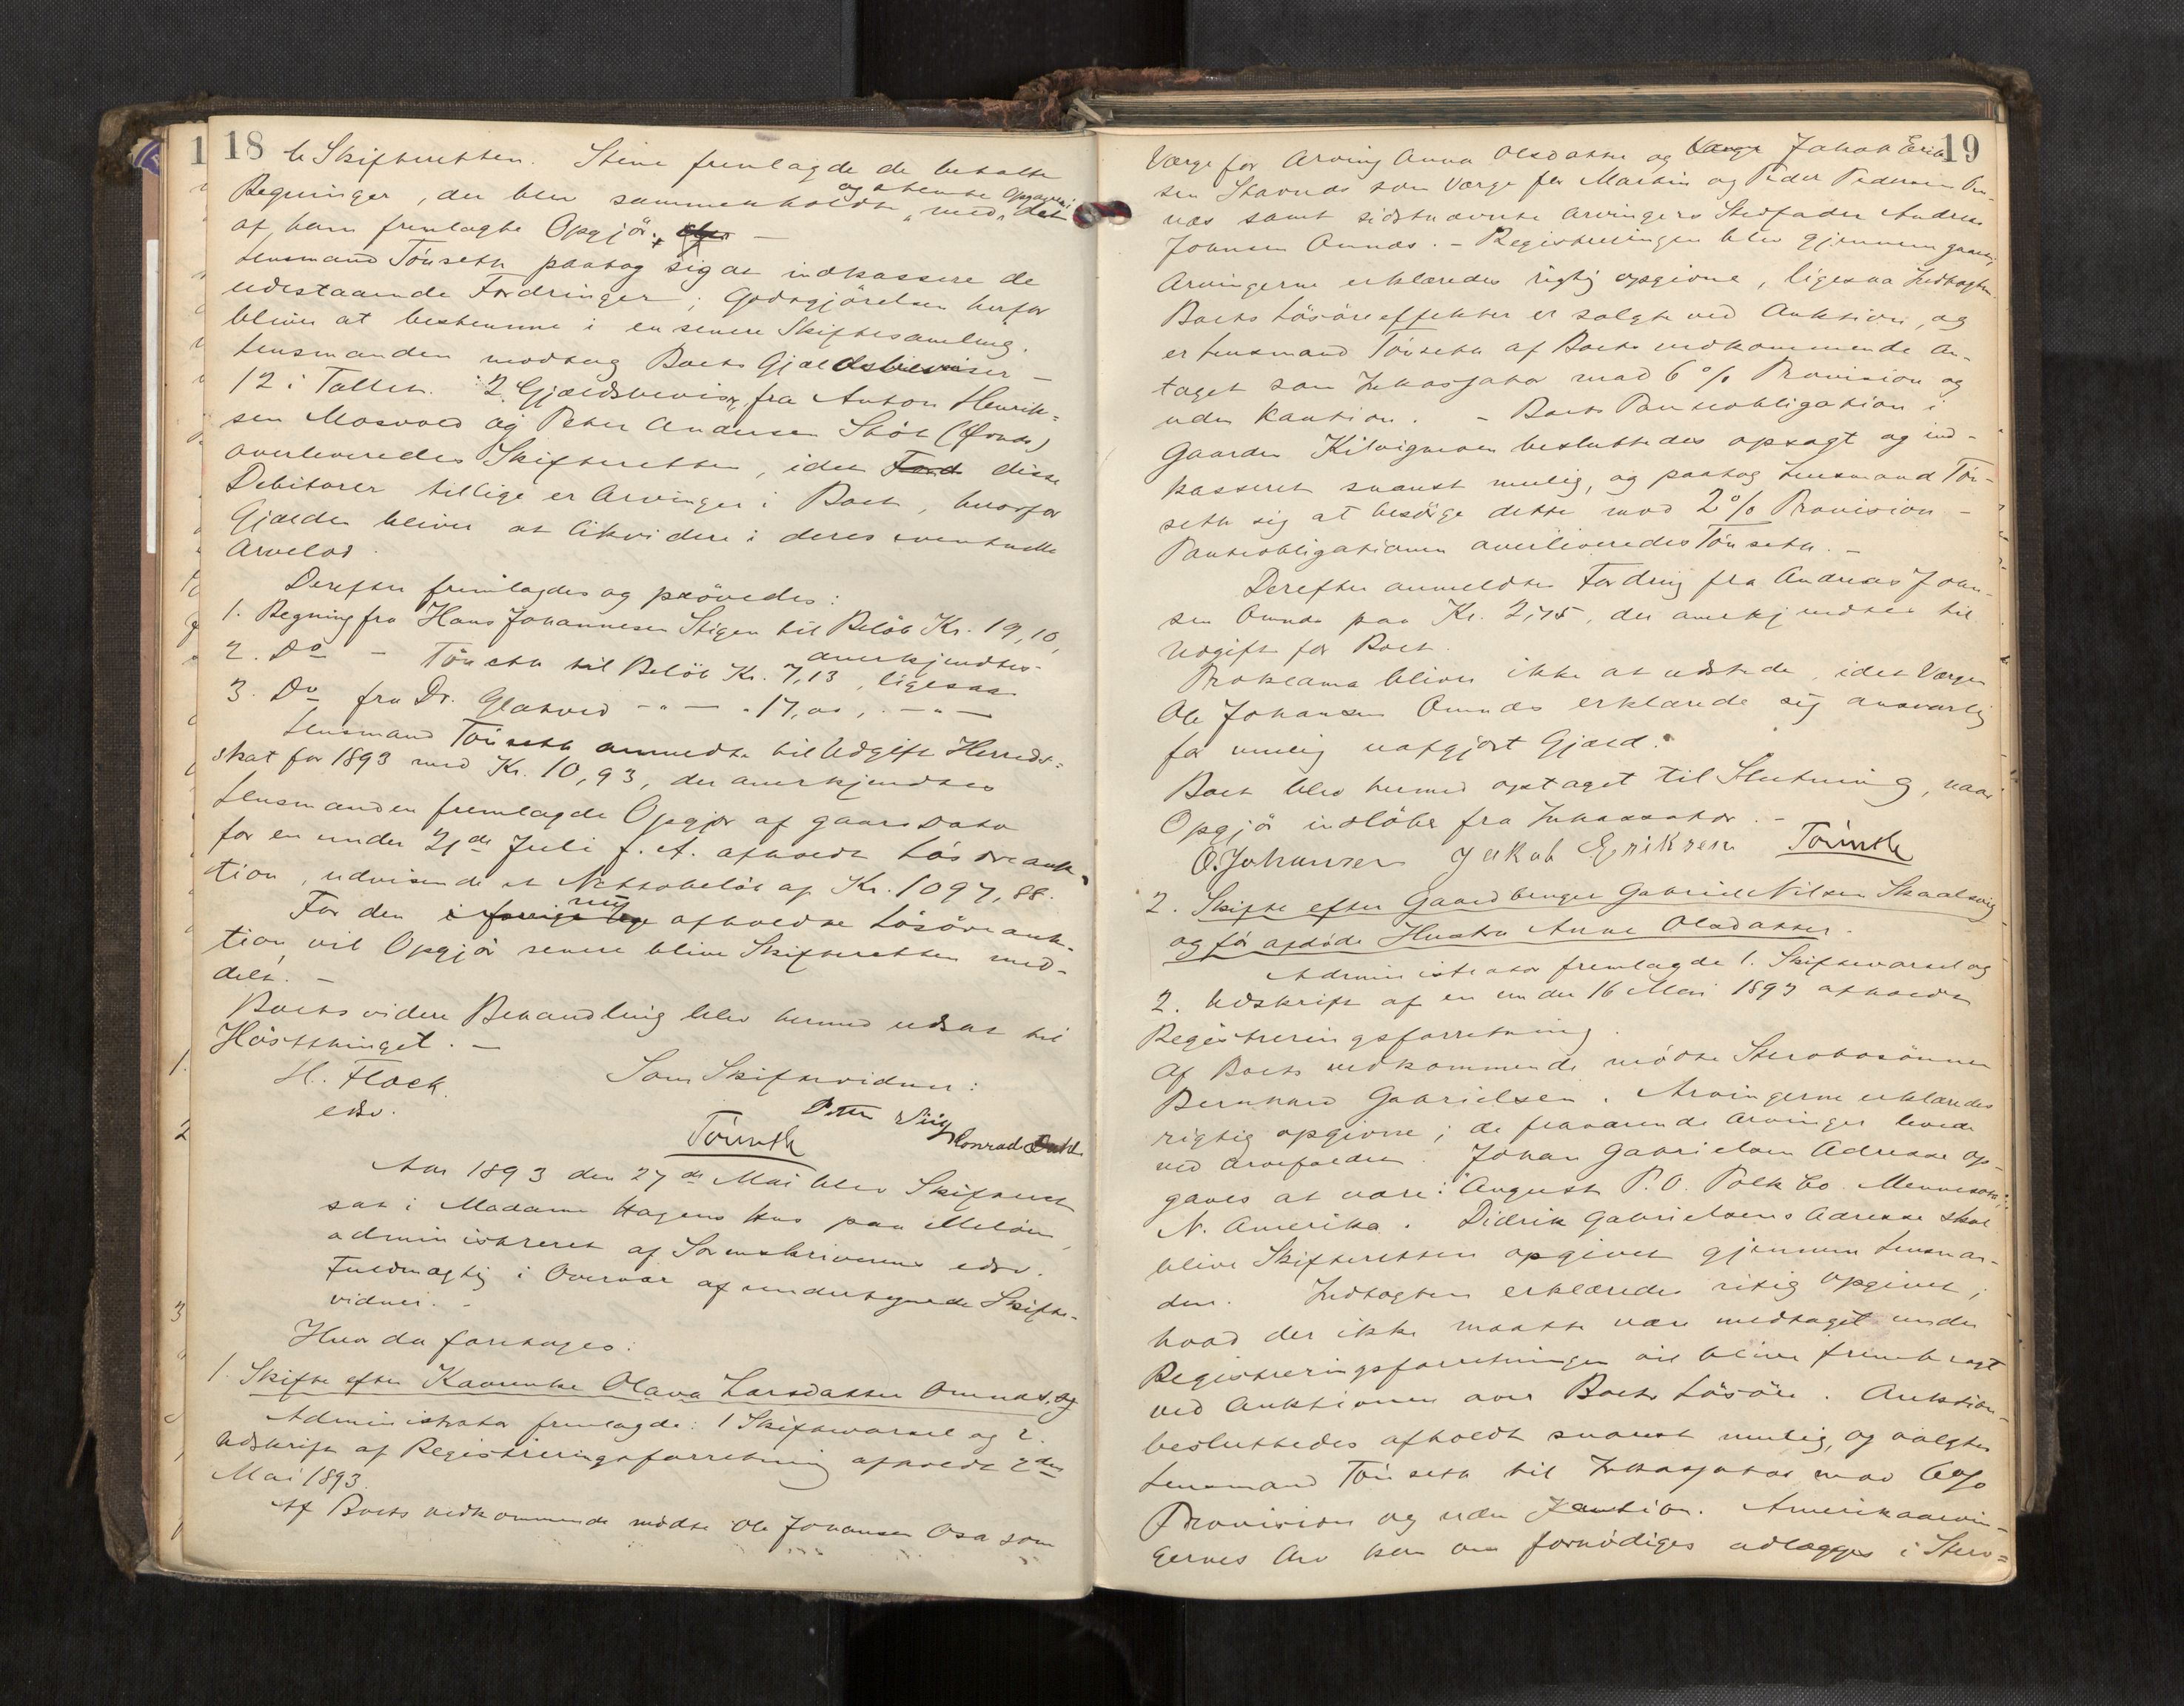 18
te Skifteretten. Stene fremlagde de betalte
Regninger, der blev sammenholdte og stemte med Opgaven i det
af ham fremlagte Opgjör. —
Lensmand Tönseth paatog sig at indkassere de
udestaaende Fordringer; Godtgjörelsen herfor
bliver at bestemme i en senere Skiftesamling.
Lensmanden modtog Boets Gjældsbeviser —
12 i Tallet. 2 Gjældsbevis fra Anton Henrik-
sen Mosvold og Peter Andersen Stöt (Ørnes)
overleveredes Skifteretten, idet Ford disse
Debitorer tillige er Arvinger i Boet, hvorfor
Gjælden bliver at likvidere i deres eventuelle
Arvelod.
Derefter fremlagdes og prövedes:
1. Regning fra Hans Johannesen Stigen til Belöb Kr. 19,10,
anerkjendtes.
2. Do — Tönseth til Belöb Kr. 7,13, ligesaa
3. Do fra Dr. Glatved — " — " 17,00, — " —
Lensmand Tönseth anmeldte til Udgift Herreds-
skat for 1893 med Kr. 10,93, der anerkjendtes
Lensmanden fremlagde Opgjör af Gaars Dato
for en under 21de Juli f. A. afholdt Lösöreauk-
tion, udvisende et Nettobelöb af Kr. 1097,88.
For den i forrige Uge nys afholdte Lösöreauk-
tion vil Opgjör senere blive Skifteretten med-
delt. —
Boets videre Behandling blev hermed udsat til
Höstthinget. —
H. Flock Som Skiftevidner:
edsv. Peter Siig
Tönseth Konrad Dahl
Aar 1893 den 27de Mai blev Skifteret
sat i Madame Hagens Hus paa Melöen,
administreret af Sorenskriverens edsv.
Fuldmægtig i Overvær af undertegnede Skifte-
vidner. —
Hvor da foretoges:
1. Skifte efter Kaarenke Olava Larsdatter Onnæs, og
Administrator fremlagde: 1 Skiftevarsel og 2.
Udskrift af Registreringsforretning afholdt 2den
Mai 1893.
Af Boets vedkommende mödte Ole Johansen Osa som
19
Værge for Arving Anna Olsdatter og Værge Jakob Erik-
sen Stavnæs som Værge for Martin og Peder Pedersen On-
næs samt sidstnævnte Arvingers Stedfader Andreas
Johnsen Onnæs. — Registreringen blev gjennemgaaet;
Arvingerne erklæredes rigtig opgivne, ligesaa Indtægten.
Boets Lösöreeffekter er solgte ved Auktion, og
er Lensmand Tönseth af Boets vedkommende an-
taget som Inkassator mod 6 % Provision og
uden Kaution. — Boets Panteobligation i
Gaarden Kilvigmoen besluttedes opsagt og ind-
kasseret snarest mulig, og paatog Lensmand Tön-
seth sig at besörge dette mod 2 % Provision —
Panteobligationen overleveredes Tönseth. —
Derefter anmeldtes Fordring fra Andreas John-
sen Onnæs paa Kr. 2,75, der anerkjendtes til
Udgift for Boet.
Proklama bliver ikke at udstede, idet Værgen
Ole Johansen Onnæs erklærede sig ansvarlig
for mulig uopgjort Gjæld.
Boet blev hermed optaget til Slutning, naar
Opgjör indlöber fra Inkassator. —
O. Johansen Jakob Eriksen Tönseth
2. Skifte efter Gaardbruger Gabriel Nilsen Skaalsvig
og för afdöde Hustru Anne Olsdatter.
Administrator fremlagde 1. Skiftevarsel og
2. Udskrift af en under 16 Mai 1893 afholdt
Registreringsforretning.
Af Boets vedkommende mödte Sterbosönnen
Bernhard Gabrielsen. Arvingerne erklæredes
rigtig opgivne; de fraværende Arvinger levede
ved Arvefaldet. Johan Gabrielsens Adresse op-
gaves at være: August P.O. Polk Co. Mennesota,
N. Amerika. Didrik Gabrielsens Adresse skal
blive Skifteretten opgivet gjennem Lensman-
den. Indtægten erklæredes rigtig opgivet;
hvad der ikke maatte være medtaget under
Registreringsforretningen vil blive frembragt
ved Auktionen over Boets Lösöre. Auktion
besluttedes afholdt snarest mulig, og valgtes
Lensmand Tönseth til Inkassator mod 6 %
Provision og uden Kaution. Amerikaarvin-
gernes Arv kan om fornödiges udlægges i Sterv-